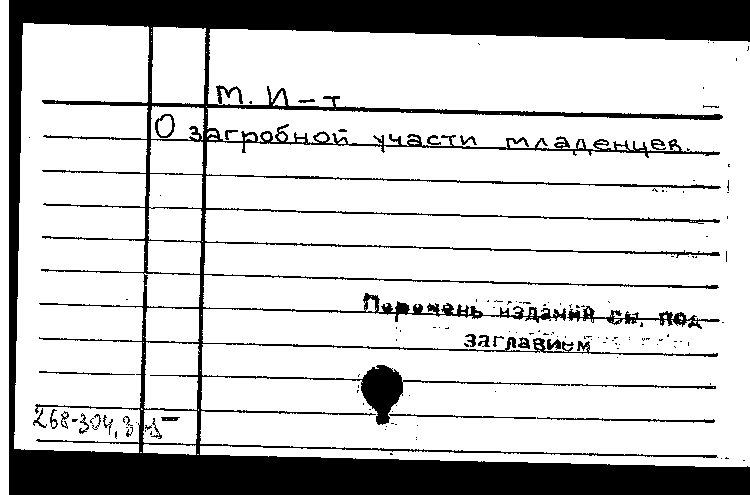 М. И-т
О загробной участи младенцев.
Перечень изданий см. под
заглавием
268-304,3